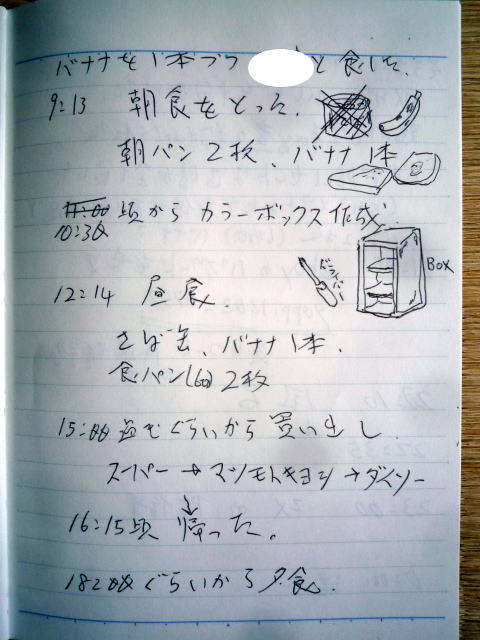 バナナを1本ブラ と食した.
9:13 朝食をとった.
朝パン2枚、バナナ1本
11:00
10:30 頃から カラーボックス作成
ドライバー
BOX
12:14 昼食
さば缶、バナナ1本.
食パン(6切)2枚
15:00 ぐらいから買い出し
スーパー→マツモトキヨシ→ダイソー
↓
16:15頃 帰った。
18:00ぐらいから夕食.